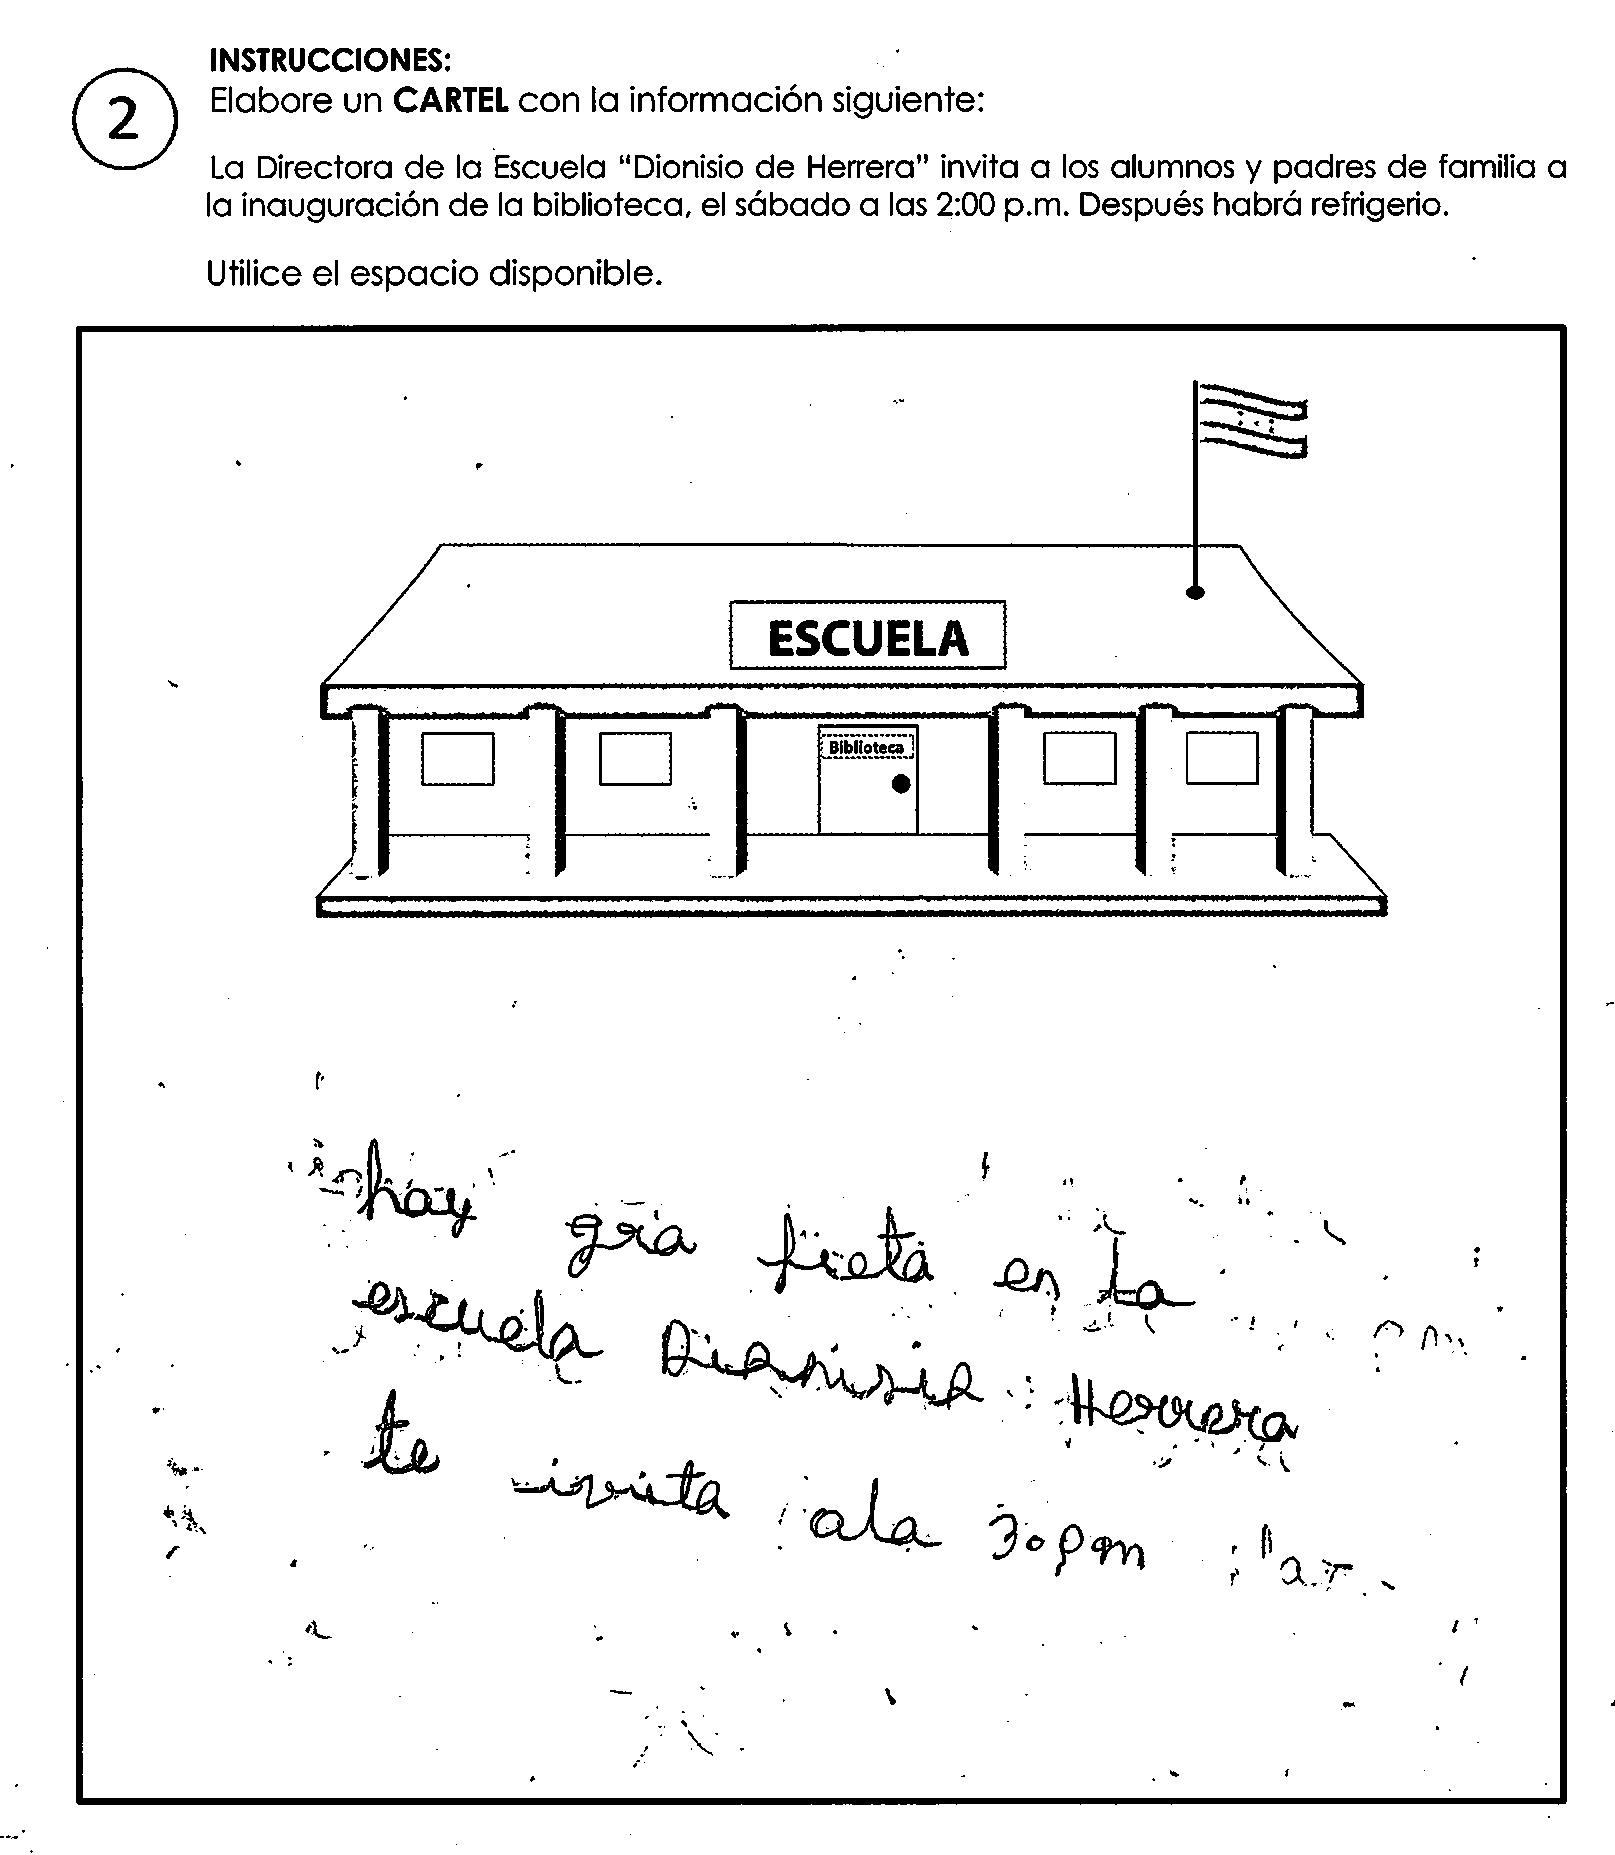 INSTRUCCIONES:
2
Elabore un CARTEL con la información siguiente:
La Directora de la Escuela “Dionisio de Herrera” invita a los alumnos y padres de familia a
la inauguración de la biblioteca, el sábado a las 2:00 p.m. Después habrá refrigerio.
Utilice el espacio disponible.
ESCUELA
Biblioteca
hay gra fieta en La
escuela Dionisio Herrera
te invita ala 30pm